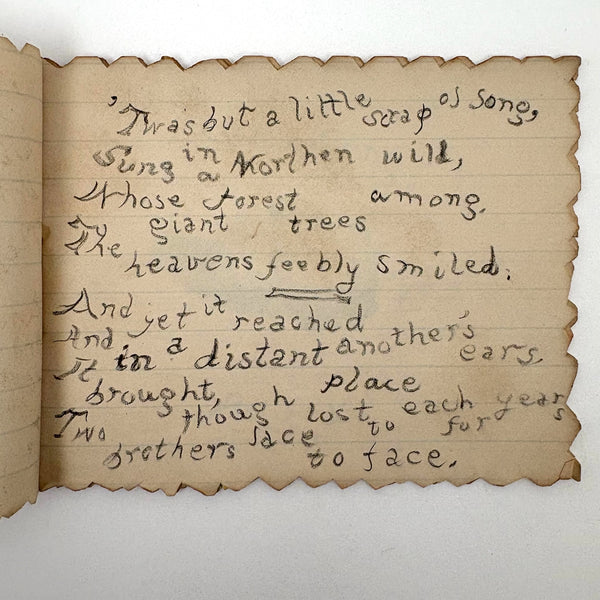 'Twas but a little scrap of song,
Sung in a Northen wild,
Whose forest among,
giant trees
The heavens feebly smiled.
And yet it reached another's ears,
And in a distant place
It brought, though lost to each for years
Two brothers face to face.